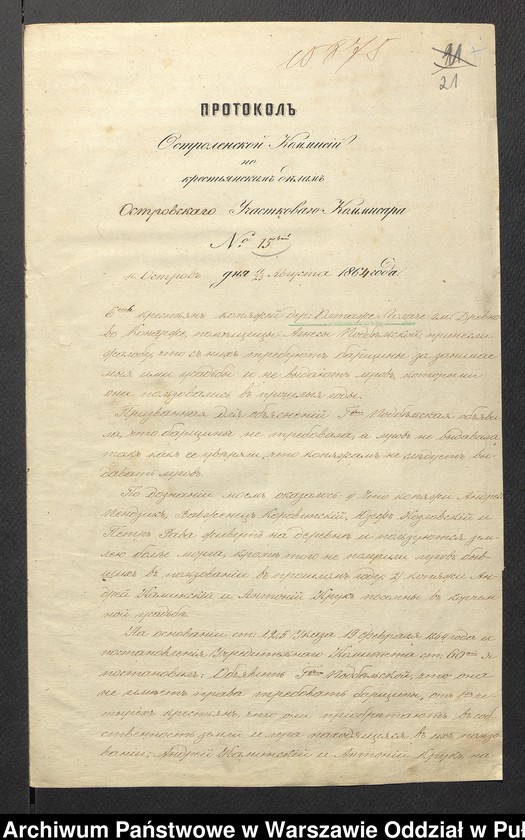 10875
21
21
ПРОТОКОЛЪ
Остроленской Коммисіи
по
крестьянскимъ дѣламъ
Островскаго Участковаго Коммисара
№ 15
г. Островъ дня 11/23 Августа 1864 года
6 крестьянъ дер.
помѣщицы Анели Подбѣльской, принесли
жалобу, что съ нихъ требуютъ барщины за занимае
мыя ими усадьбы и не выдаютъ луговъ, которыми
они пользовались въ прошлые годы.
Призванная для объясненій Г-жа Подбѣльская объяви
ла, что барщины не требовала, а луговъ не выдавала,
такъ какъ увѣряли, что не слѣдуетъ вы
давать луговъ.
По дознанію моему оказалось: 1) Что Андрей
Козловскій и
Петръ на деревнѣ и пользуются зем
лею болѣе морга, кромѣ того не луговъ быв
шихъ въ пользованіи въ прошломъ году; 2) Ан
дрей Каминскій и Антоній Крукъ въ корчем
ной усадьбѣ.
На основаніи ст. Указа 19 Февраля 1864 года и
постановленія Учредительнаго Комитета ст. 60 я
постановилъ: Объявить Г-жѣ Подбѣльской, что она
не имѣетъ права требовать барщины, отъ че
тырехъ крестьянъ, что они пріобрѣтаютъ въ соб
ственность земли и луга находящіеся въ ихъ пользо
ваніи; Андрей Каминскій и Антоній Крукъ, на
Archiwum Państwowe w Warszawie Oddział w Puł